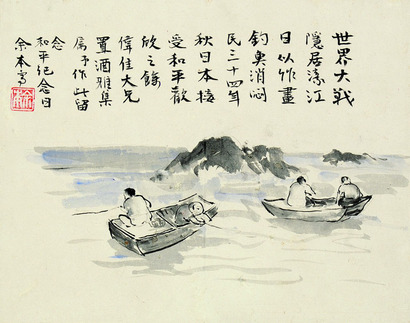 世界大戰
隱居濠江
日以作畫
釣魚消悶
民三十四年
秋日本接
受和平歡
欣之餘
偉佳大兄
置酒雅集
属予作此留
念
和平纪念日
余本寫
余本